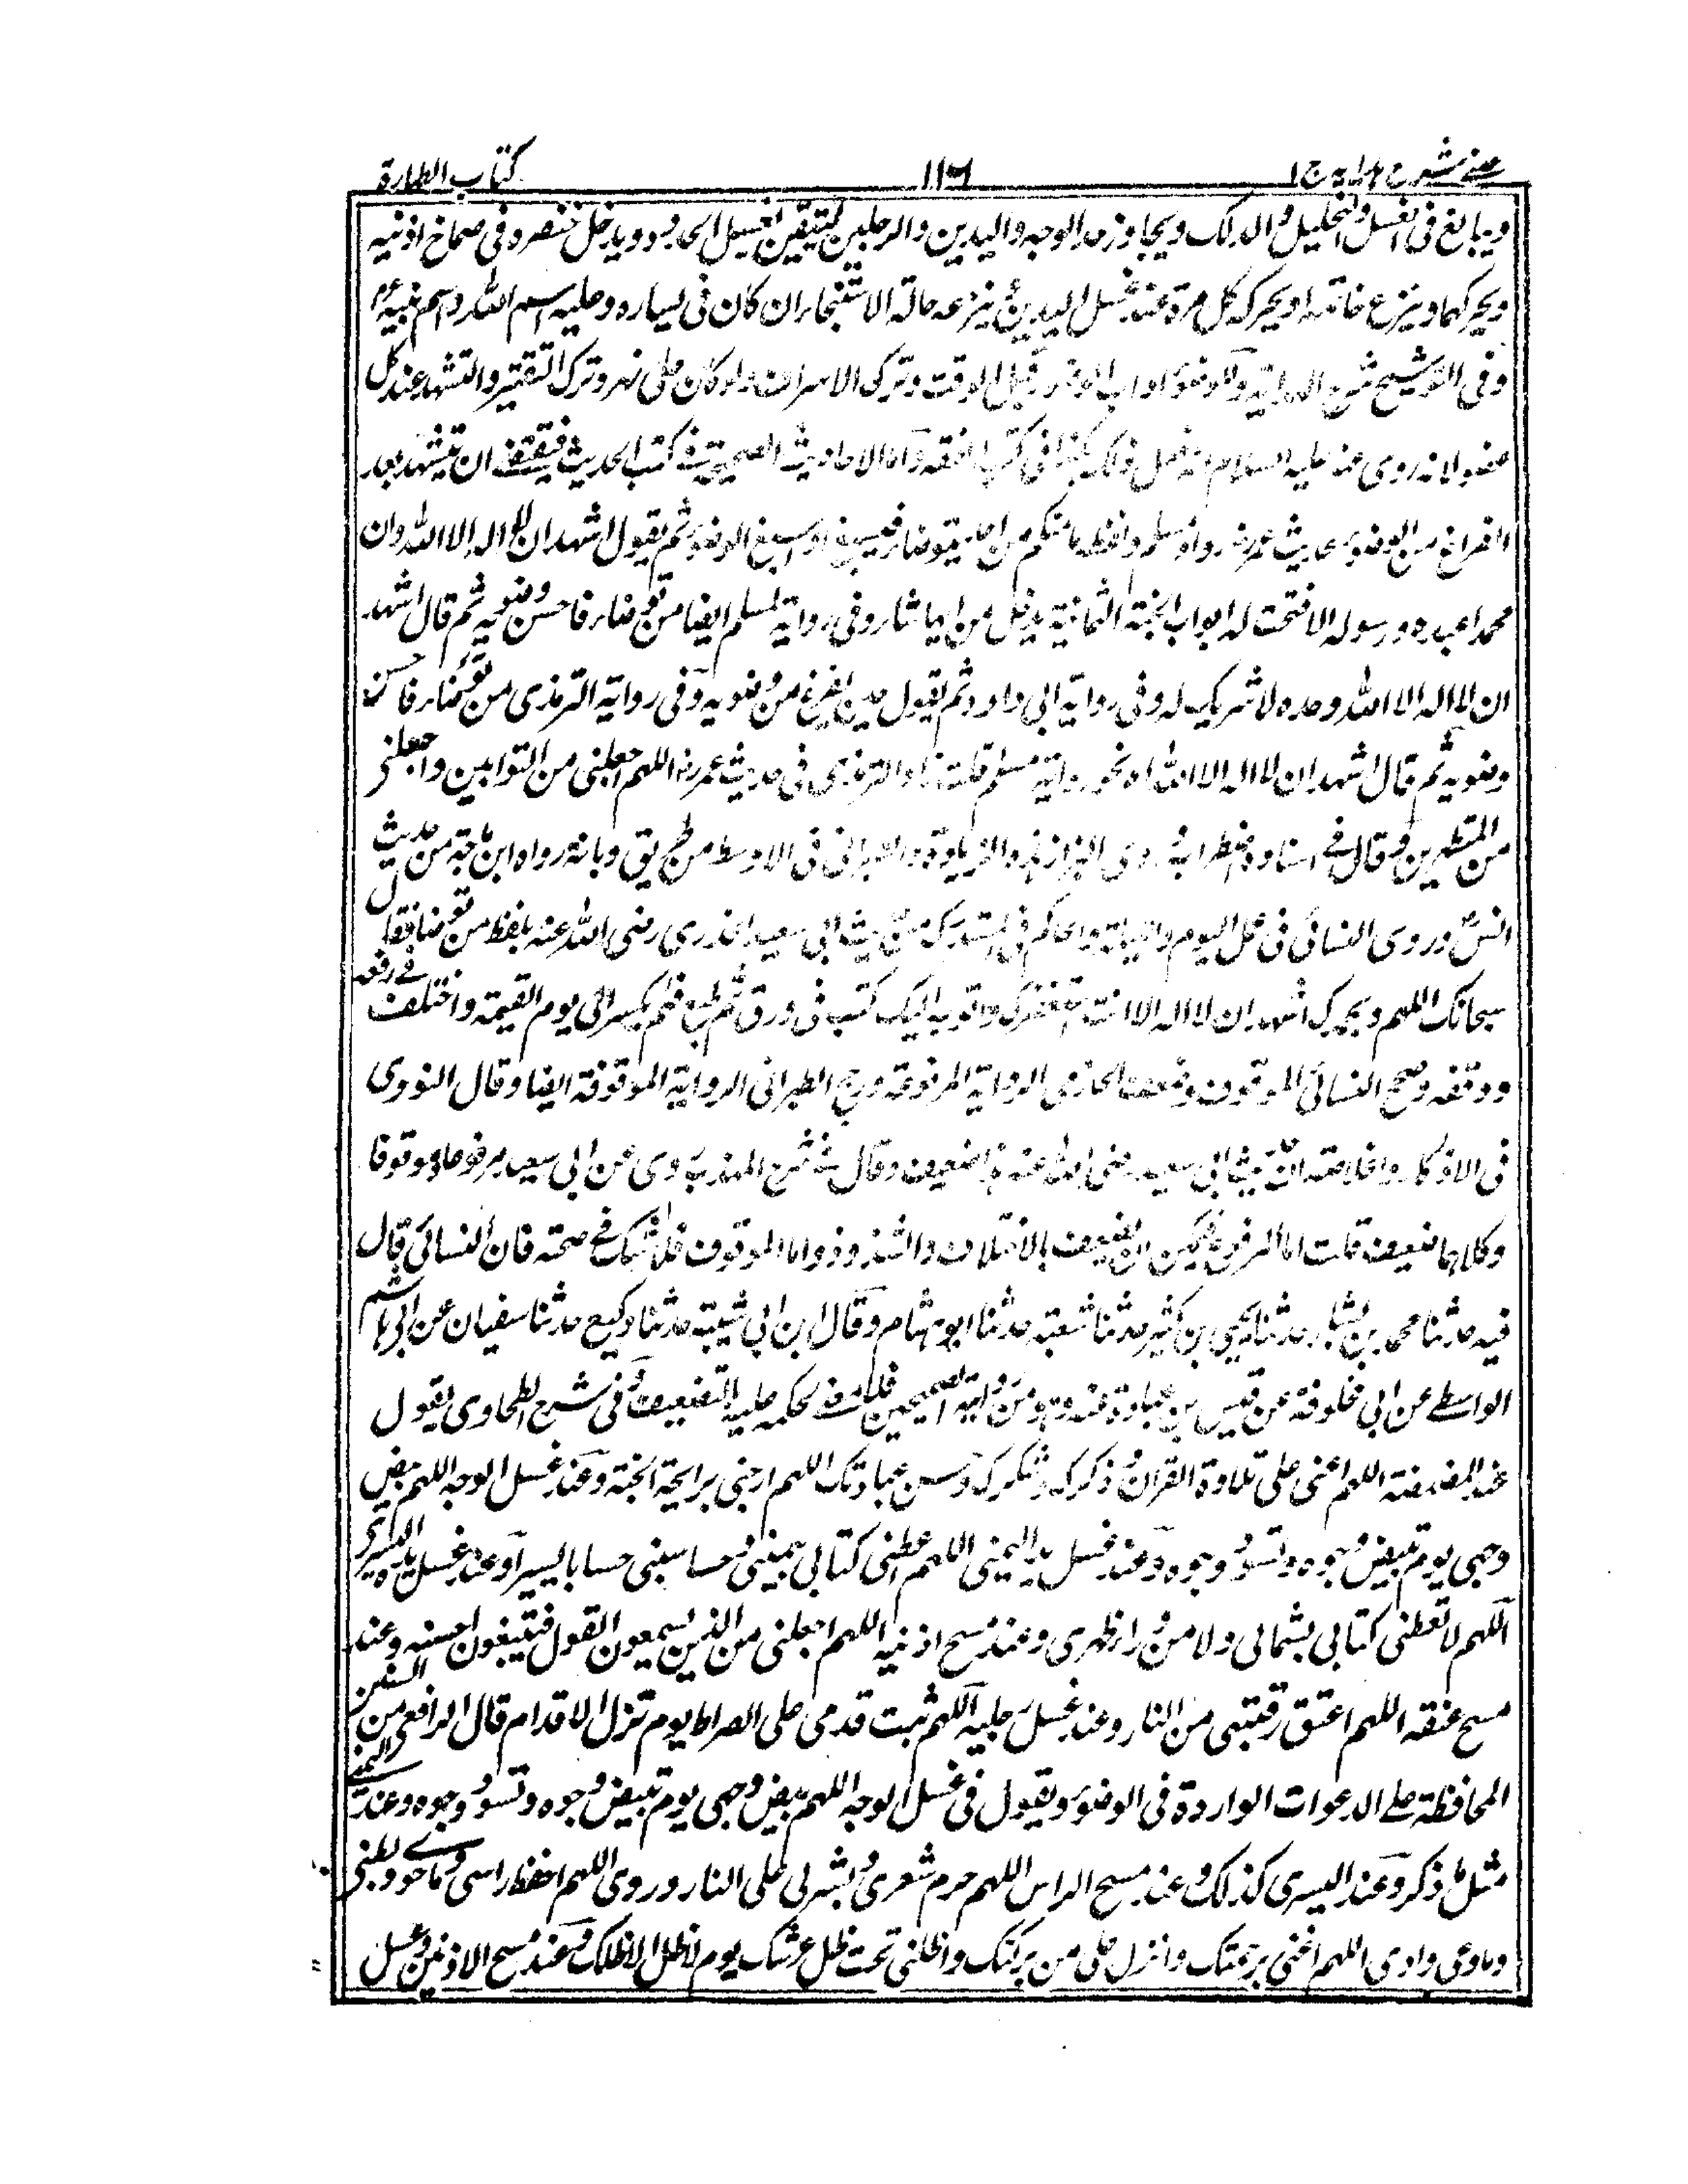 عيني شرح هداية ج ١
١١٦
كتاب الطهارة
ويبالغ في الغسل والتخليل والدلك ويجاوز حد الوجه واليدين والرجلين ليتيقن بغسل الحدود ويدخل خنصره في صماخ اذنيه
ويحركهما وينزع خاتمه او يحركه كل مرة عند غسل اليدين ثم ينزعه حالة الاستنجاء ان كان في يساره وعليه اسم الله واسم نبيه
وفي التوشيح شرح الهداية والوضوء اداب الوضوء قبل الوقت وترك الاسراف ولو كان على نهر وترك التقتير والتشهد عند كل
عضو لانه روي عنه عليه السلام انه فعل ذلك كذا في كتب الفقه واما الاحاديث الصحيحة في كتب الحديث فيقتضي ان يتشهد بعد
الفراغ من الوضوء حديث عمر رضه رواه مسلم ولفظه ما منكم من احد يتوضأ فيسبغ او يسبغ الوضوء ثم يقول اشهد ان لا اله الا الله وان
محمدا عبده ورسوله الا فتحت له ابواب الجنة الثمانية يدخل من ايها شاء وفي رواية لمسلم ايضا من توضأ فاحسن وضويه ثم قال اشهد
ان لا اله الا الله وحده لا شريك له وفي رواية ابي داود ثم يقول حين يفرغ من وضويه وفي رواية الترمذي من توضأ فاحسن
وضويه ثم قال اشهد ان لا اله الا الله اه نحو رواية مسلم قلت زاد الترمذي في حديث عمر رضه اللهم اجعلني من التوابين واجعلني
من المتطهرين وقال في اسناده اضطراب وروى البزاز هذه الزيادة والطبراني في الاوسط من طريق وبانه رواه ابن ماجة من حديث
انس وروى النسائي في عمل اليوم والليلة والحاكم في المستدرك من حديث ابي سعيد الخدري رضي الله عنه بلفظ من توضأ فقال
سبحانك اللهم وبحمدك اشهد ان لا اله الا انت استغفرك واتوب اليك كتب في ورق ثم طبع فلم يكسر الى يوم القيمة واختلف في رفعه
ووقفه وصحح النسائي الموقوف وضعف الحازمي الرواية المرفوعة ورجح الطبراني الرواية الموقوفة ايضا وقال النووي
في الاذكار والخلاصة ان حديث ابي سعيد رضي الله عنه هذا ضعيف وقال في شرح المهذب روي عن ابي سعيد مرفوعا وموقوفا
وكلاهما ضعيف قلت اما المرفوع فيمكن ان يضعف بالاختلاف والشذوذ واما الموقوف فلا شك في صحته فان النسائي قال
فيه حدثنا محمد بن بشار حدثنا يحيى بن كثير حدثنا شعبة حدثنا ابو هشام وقال ابن ابي شيبة حدثنا وكيع حدثنا سفيان عن ابي هاشم
الواسطي عن ابي مخلوفة عن قيس بن عبادة عنه وهو من رواية الصحيحين فلا معنى لحكمه عليه بالتضعيف وفي شرح الطحاوي يقول
عند المضمضة اللهم اعني على تلاوة القران وذكرك وشكرك وحسن عبادتك اللهم ارحني برايحة الجنة وعند غسل الوجه اللهم بيض
وجهي يوم تبيض وجوه وتسود وجوه وعند غسل يده اليمنى اللهم اعطني كتابي بيميني وحاسبني حسابا يسيرا وعند غسل يده اليسرى
اللهم لا تعطني كتابي بشمالي ولا من وراء ظهري وعند مسح اذنيه اللهم اجعلني من الذين يسمعون القول فيتبعون احسنه وعند
مسح عنقه اللهم اعتق رقبتي من النار وعند غسل رجليه اللهم ثبت قدمي على الصراط يوم تزل الاقدام قال الرافعي من السنن
المحافظة على الدعوات الواردة في الوضوء ويقول في غسل الوجه اللهم بيض وجهي يوم تبيض وجوه وتسود وجوه وعند اليمنى
مثل ما ذكر وعند اليسرى كذلك وعند مسح الراس اللهم حرم شعري وبشرلي على النار وروي اللهم احفظ راسي وما حوى وبطني
وما وعى وادي اللهم اغثني برحمتك وانزل علي من بركتك واظلني تحت ظل عرشك يوم لا ظل الا ظلك وعند مسح الاذنين وغسل